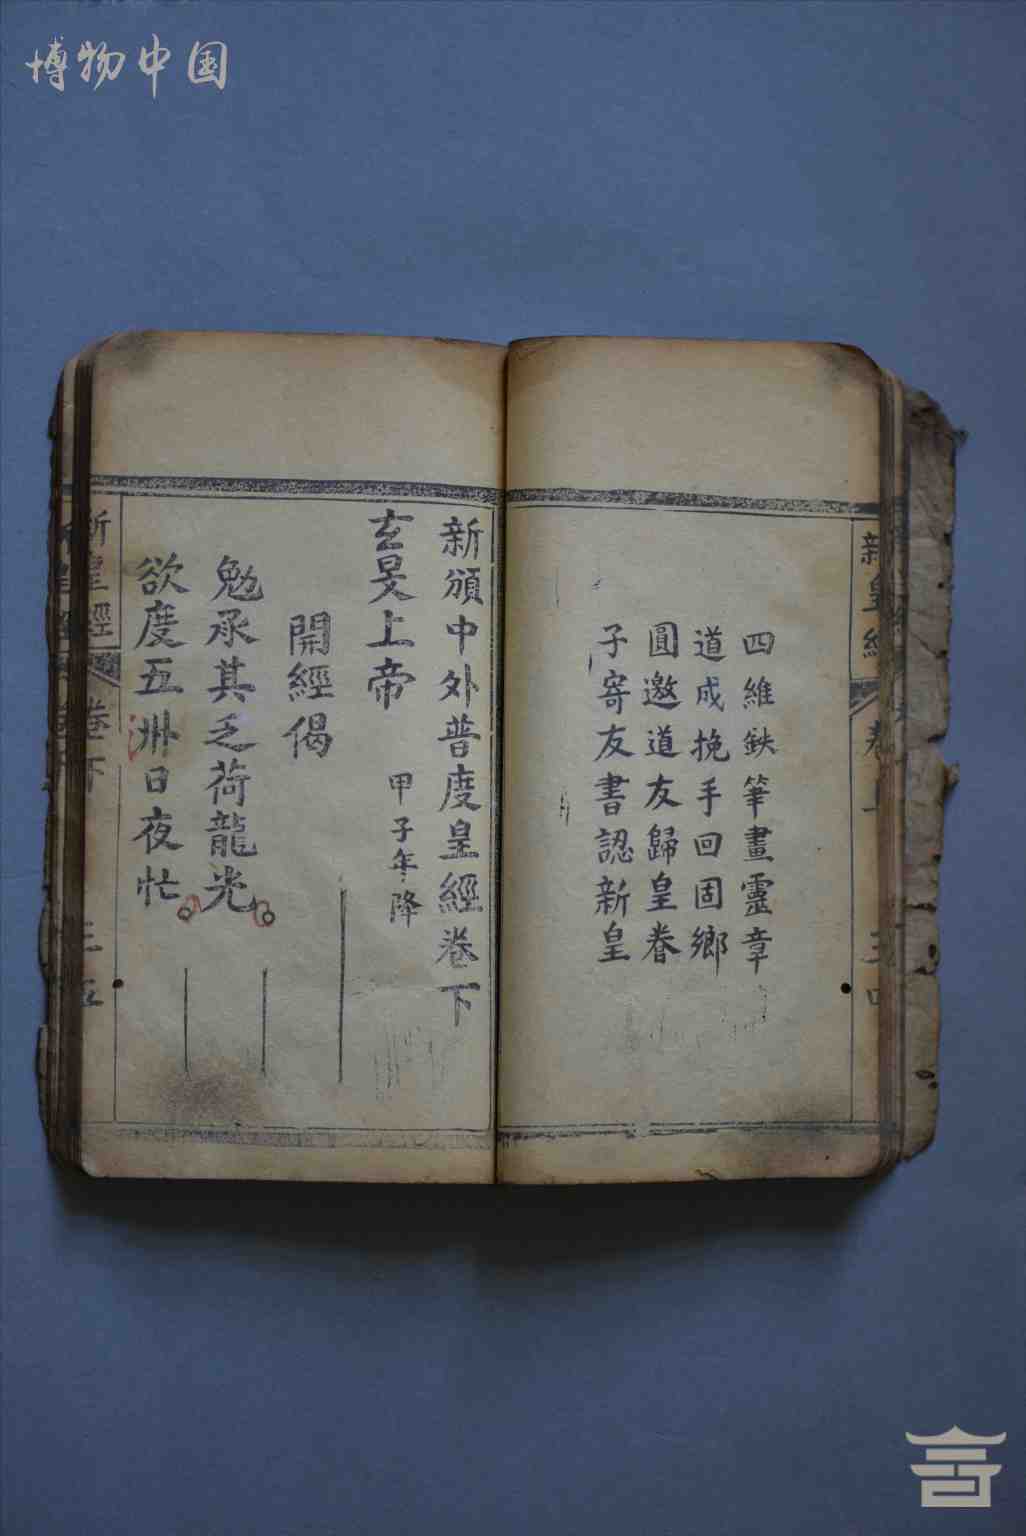 博物中国
新皇經
四維鈌筆畫靈章
道成挽手回固鄉
圓邀道友歸皇眷
子寄友書認新皇
新頒中外普度皇經卷下
玄旻上帝
甲子年降
開經偈
勉承其乏荷龍光
欲度五州日夜忙
新皇經 卷下 三五